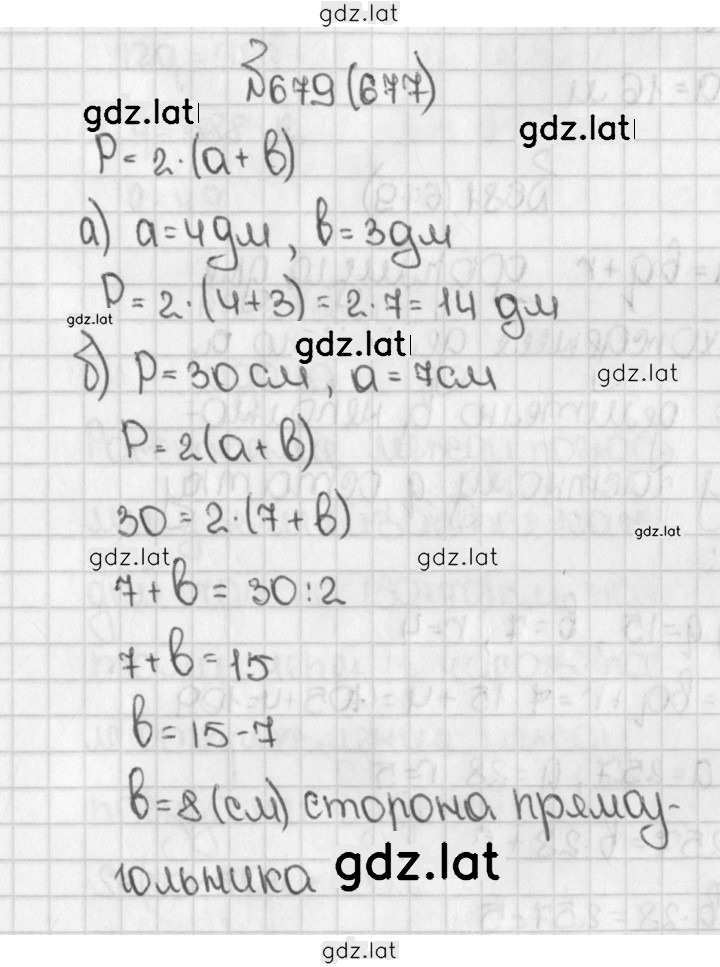 gdz.lat
№679 (677)
gdz.lat
gdz.lat
P = 2·(a + b)
а) a = 4 дм, b = 3 дм
P = 2·(4 + 3) = 2·7 = 14 дм
gdz.lat
gdz.lat
б) P = 30 см, a = 7 см
gdz.lat
P = 2(a + b)
30 = 2·(7 + b)
gdz.lat
gdz.lat
gdz.lat
7 + b = 30 : 2
7 + b = 15
b = 15 - 7
b = 8 (см) сторона прямоу-
гольника
gdz.lat
gdz.lat